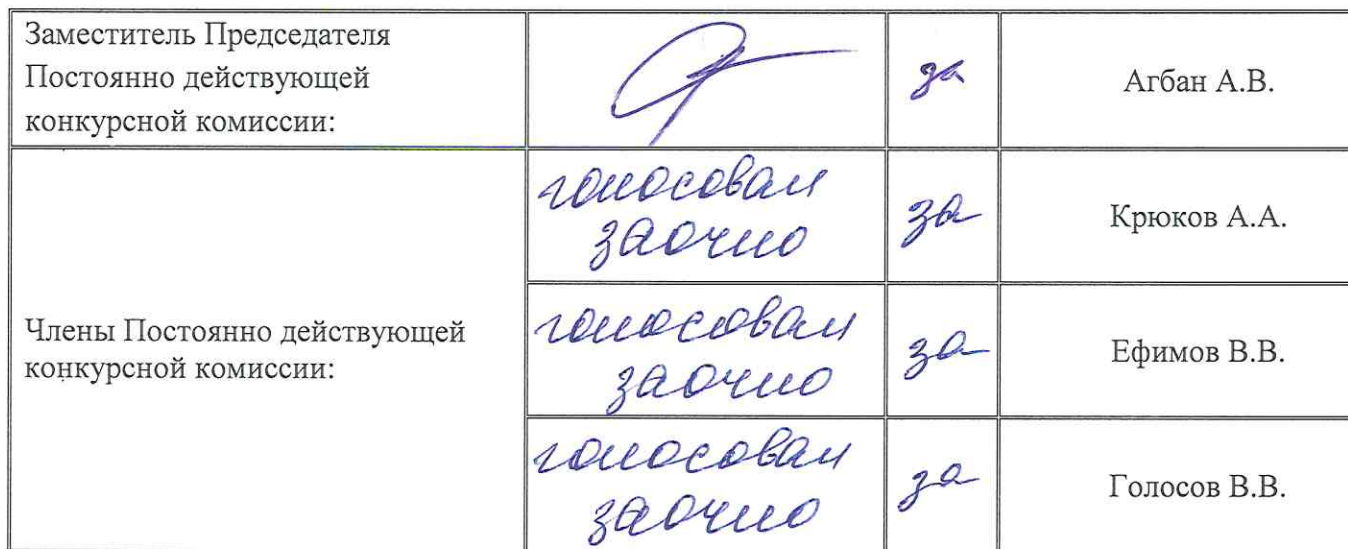 Заместитель Председателя
Постоянно действующей
конкурсной комиссии:
за
Агбан А.В.
Члены Постоянно действующей
конкурсной комиссии:
голосовал
заочно
за
Крюков А.А.
голосовал
заочно
за
Ефимов В.В.
голосовал
заочно
за
Голосов В.В.